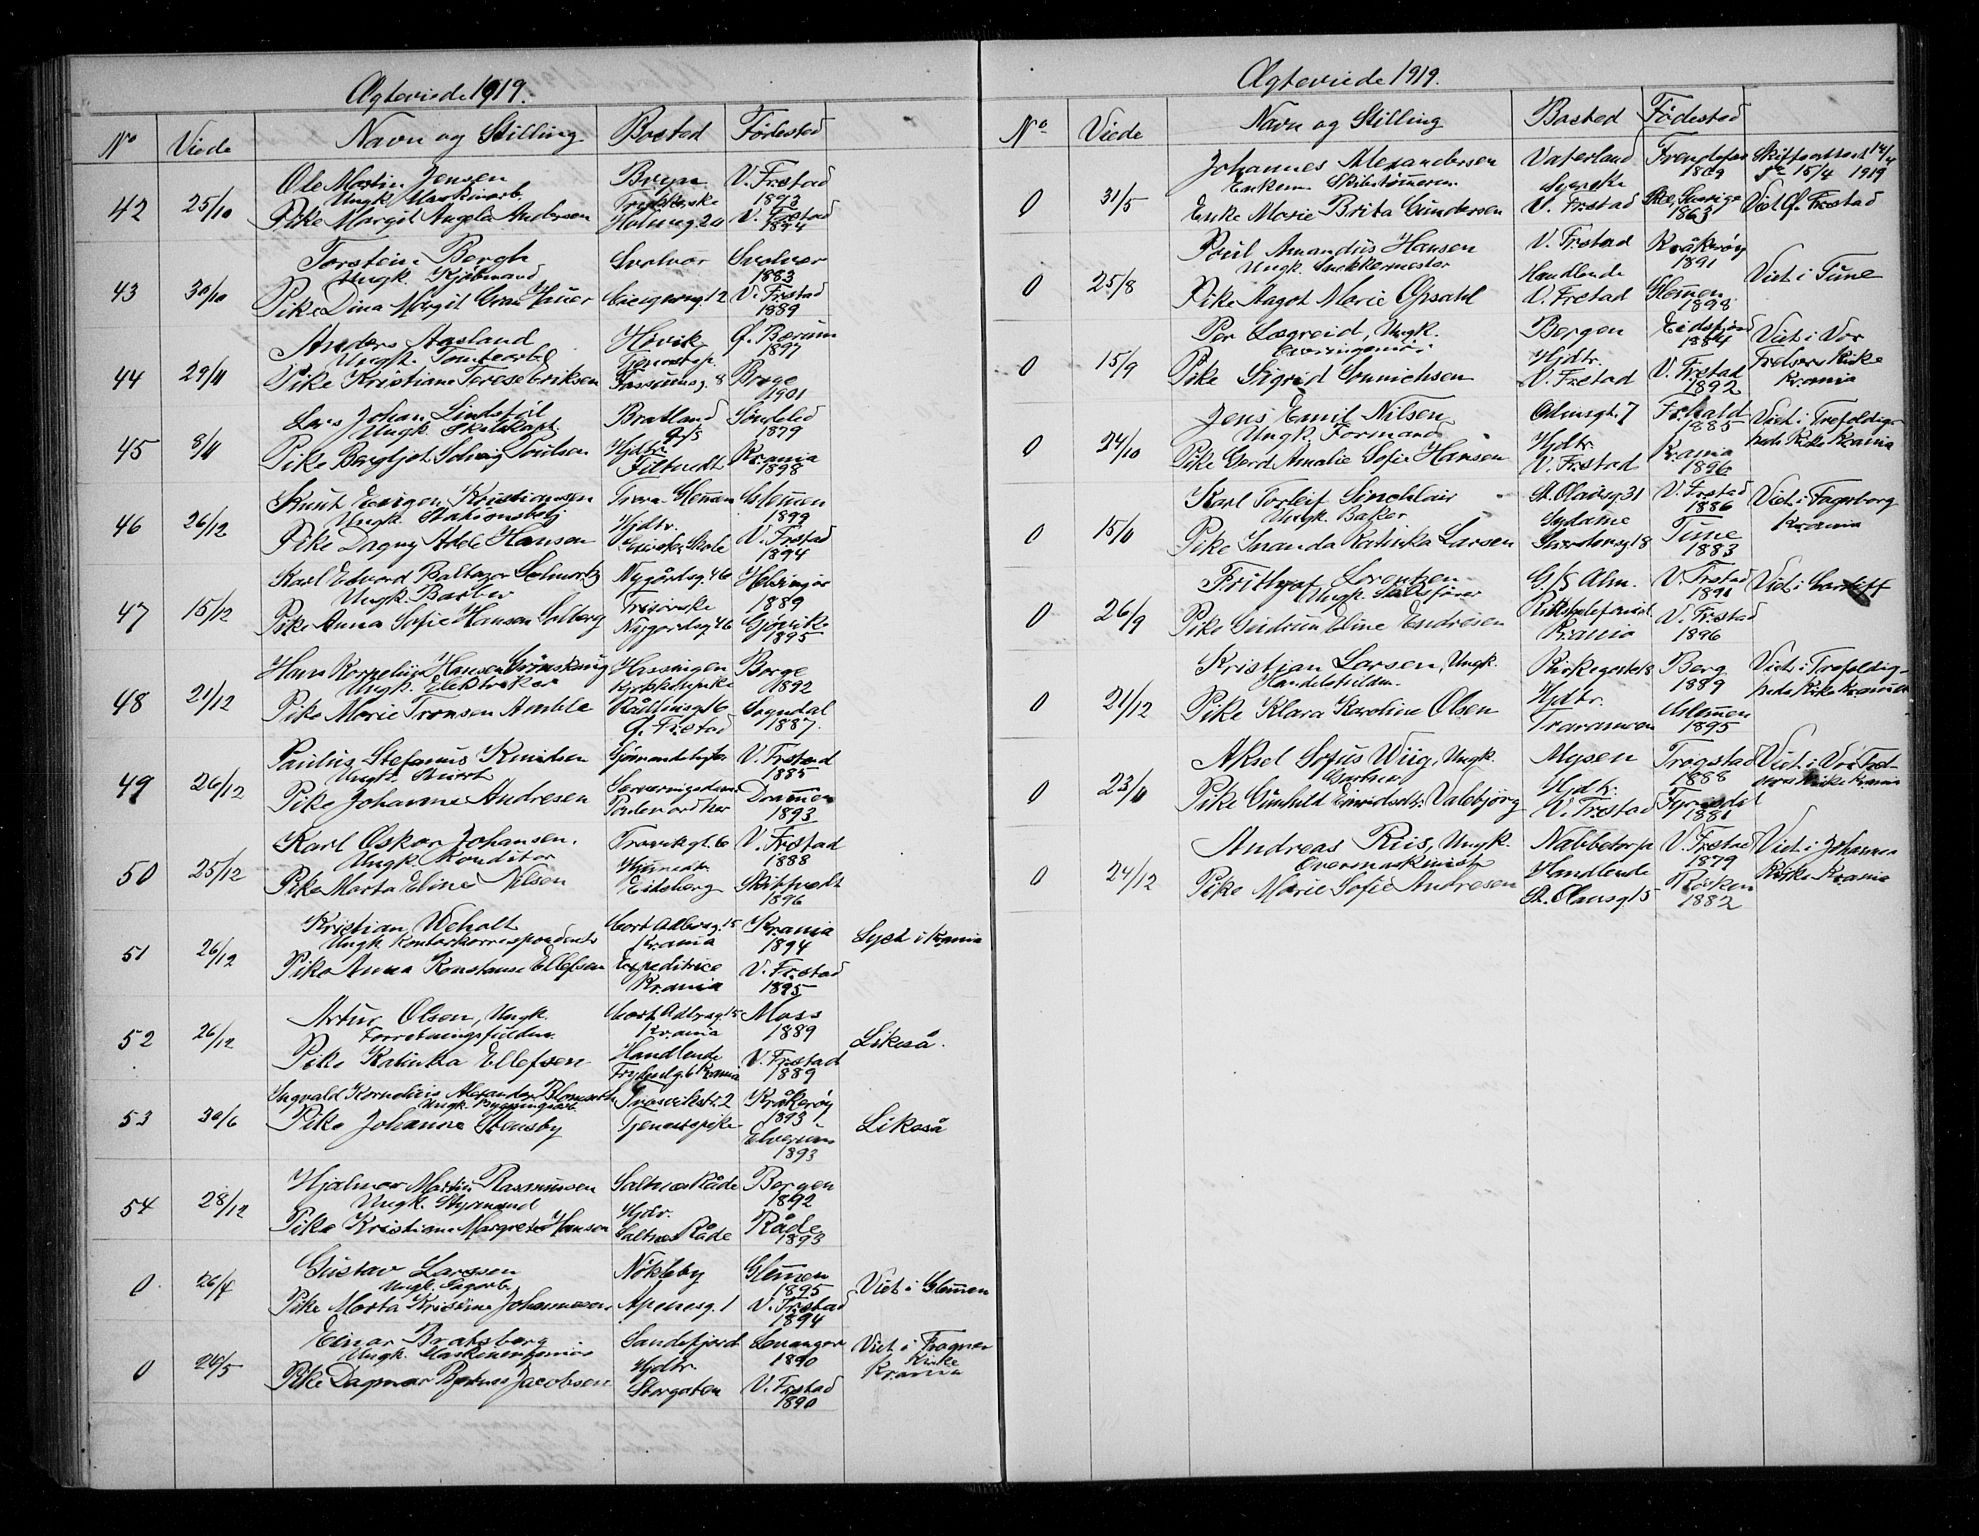 Ægteviede 1919.
No Viede Navn og Stilling Bosted Fødested
42 25/10 Ole Martin Jensen Bryn V. Fr.stad
Ungk. Maskinarb. 1893
Pike Margit Angela Andersen Holmeg. 2a V. Fr.stad
1894
43 30/10 Torstein Bergh Svolvær Svolvær
Ungk. Kjøbmand 1883
Pike Dina Margit Gran Hauer V. Fr.stad
1889
44 29/11 Anders Aasland Høvik Ø. Bærum
Ungk. Tomtearb. 1897
Pike Kristiane Terese Eriksen Borge
1901
45 8/11 Lars Johan Lindstøl Bratland Søndeled
Ungk. Skibskapt. 1879
Pike Bergljot Solveig Poulsen Hjdtr. Kr.ania
1898
46 26/12 Knut Kristiansen Glemmen Glemmen
Ungk. Stationsbetj. 1899
Pike Dagny Adele Hansen Hjdtr. V. Fr.stad
1894
47 15/12 Karl Edvard Baltazar Nygårdsg. 46 Helsingør
Ungk. Barber 1889
Pike Anna Sofie Hansen Solberg Frisørinde Nygårdsg. 46 Gjøvike
1895
48 21/12 Hans Kornelius Hansen Hassingen Borge
Ungk. Elektriker 1892
Pike Marie Tronsen Amble Sogndal
Ø. Fr.stad 1887.
49 26/12 Paulus Stefanus Knudsen V. Fr.stad
Ungk. 1885
Pike Johanne Andresen Drammen
1893
50 25/12 Karl Oskar Johansen. Traravikgt. 6 V. Fr.stad
Ungk. Konditor 1888
Pike Marta Eline Nilsen Eidsberg Skiptvedt
1896
51 26/12 Kristian Weholt Cort Adlersg. 15 Kr.ania
Ungk. Kontorkorrespondent Kr.ania 1894 Lyst i Kr.ania
Pike Anna Konstanse Ellefsen Expeditrice V. Fr.stad
Kr.ania 1895
52 26/12 Artur Olsen, Ungk. Cort Adlersg. 15 Moss
Forretningsfuldm. Kr.ania 1889 Likeså.
Pike Katinka Ellefsen Handlende V. Fr.stad
Kr.ania 1889
53 30/6 Ingvald Kornelius Alexander Trosvikstr. 2 Kråkerøy
Ungk. Bygningsarb. 1893
Pike Johanne Stensby Tjenestepike Elverum Likeså
1893
54 28/12 Hjalmar Martin Rasmussen Saltnes Råde Bergen
Ungk. Styrmand 1892
Pike Kristiane Margrete Hansen Hjdtr. Saltnes Råde Råde
1893
0 26/4 Gustav Larssen Nøkleby Glemmen
Ungk. 1895 Viet i Glemmen
Pike Marta Kristine Johannessen Apenesg. 1 V. Fr.stad
1894
0 24/5 Einar Bratsberg Sandefjord Levanger Viet i Frogner
Ungk. Maskiningeniør 1890 Kirke
Pike Dagmar Jacobsen Hjdtr. Kr.ania
Storgaten V. Fr.stad
1890
Ægteviede 1919.
No Viede Navn og Stilling Bosted Fødested
0 31/5 Johannes Alexandersen Vaterland Skifteattest 14/4
Enkem. Skibstømmerm. 15/4 1919
Enke Marie Brita Gundersen V. Fr.stad Sverige Viet Ø. Fr.stad
1863
0 25/8 Poul Amandus Hansen V. Fr.stad Kråkerøy
Ungk. Snekkermester 1891 Viet i Tune
Pike Aagot Marie Opsahl Handlende V. Fr.stad Glemmen
1898
0 15/9 Per Lægreid, Ungk. Bergen Eidsfjord Viet i Vor
1884 Frelsers Kirke
Pike Sigrid Sønnichsen Hjdtr. V. Fr.stad V. Fr.stad Kr.ania
1892
0 24/10 Jens Emil Nilsen Fr.hald Viet i Trefoldig-
Ungk. Formand 1885 heds Kirke Kr.ania
Pike Gerd Amalie Sofie Hansen Hjdtr. V. Fr.stad Kr.ania
1896
0 15/11 Karl Torleif Sinclair St. Olavsg. 31 V. Fr.stad Viet i Fagerborg
Ungk. Baker 1886 Kr.ania
Pike Inanda Katinka Larsen Sydame Tune
1883
0 26/9 Frithjof Lorentzen V. Fr.stad Viet i Cardiff
Ungk. Skibsfører 1891
Pike Gudrun Eline Endresen Kr.ania V. Fr.stad
1896
0 21/12 Kristian Larsen, Ungk. Berg Viet i Trefoldig-
Handelsfuldm. 1889 heds Kirke Kr.ania
Pike Klara Karoline Olsen Hjdtr. Glemmen
Traraveien 1895
0 23/11 Aksel Sofus Wiig, Ungk. Mysen Trøgstad Viet i Vor Frel-
Gartner 1888 sers Kirke Kr.ania
Pike Gunhild Eivindsdtr. Valebjørg Hjdtr. V. Fr.stad Fyresdal
1881
0 24/12 Andreas Riis, Ungk. Nabbetorp V. Fr.stad Viet i Johannes
Overmaskinist 1879 Kirke Kr.ania
Pike Marie Sofie Andresen Handlende St. Olavsg. 15 Røyken
1882